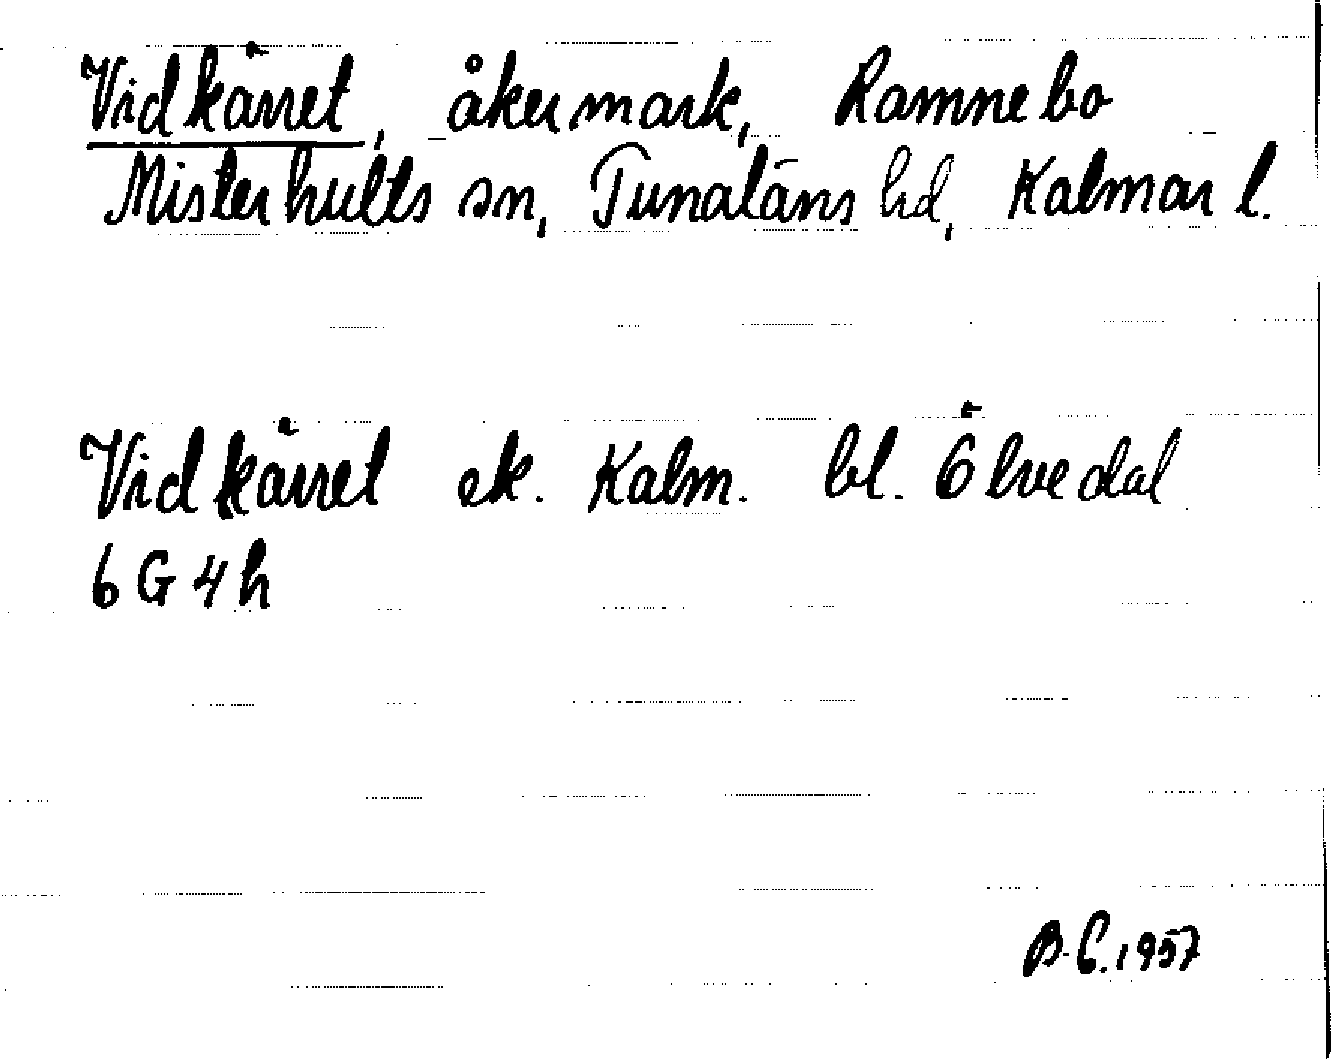 Vidkärret, åkermark, Ramnebo
Misterhults sn, Tunaläns hd, Kalmar l.
Vidkärret ek. Kalm. bl. Ölvedal
6G4h
B.C. 1957